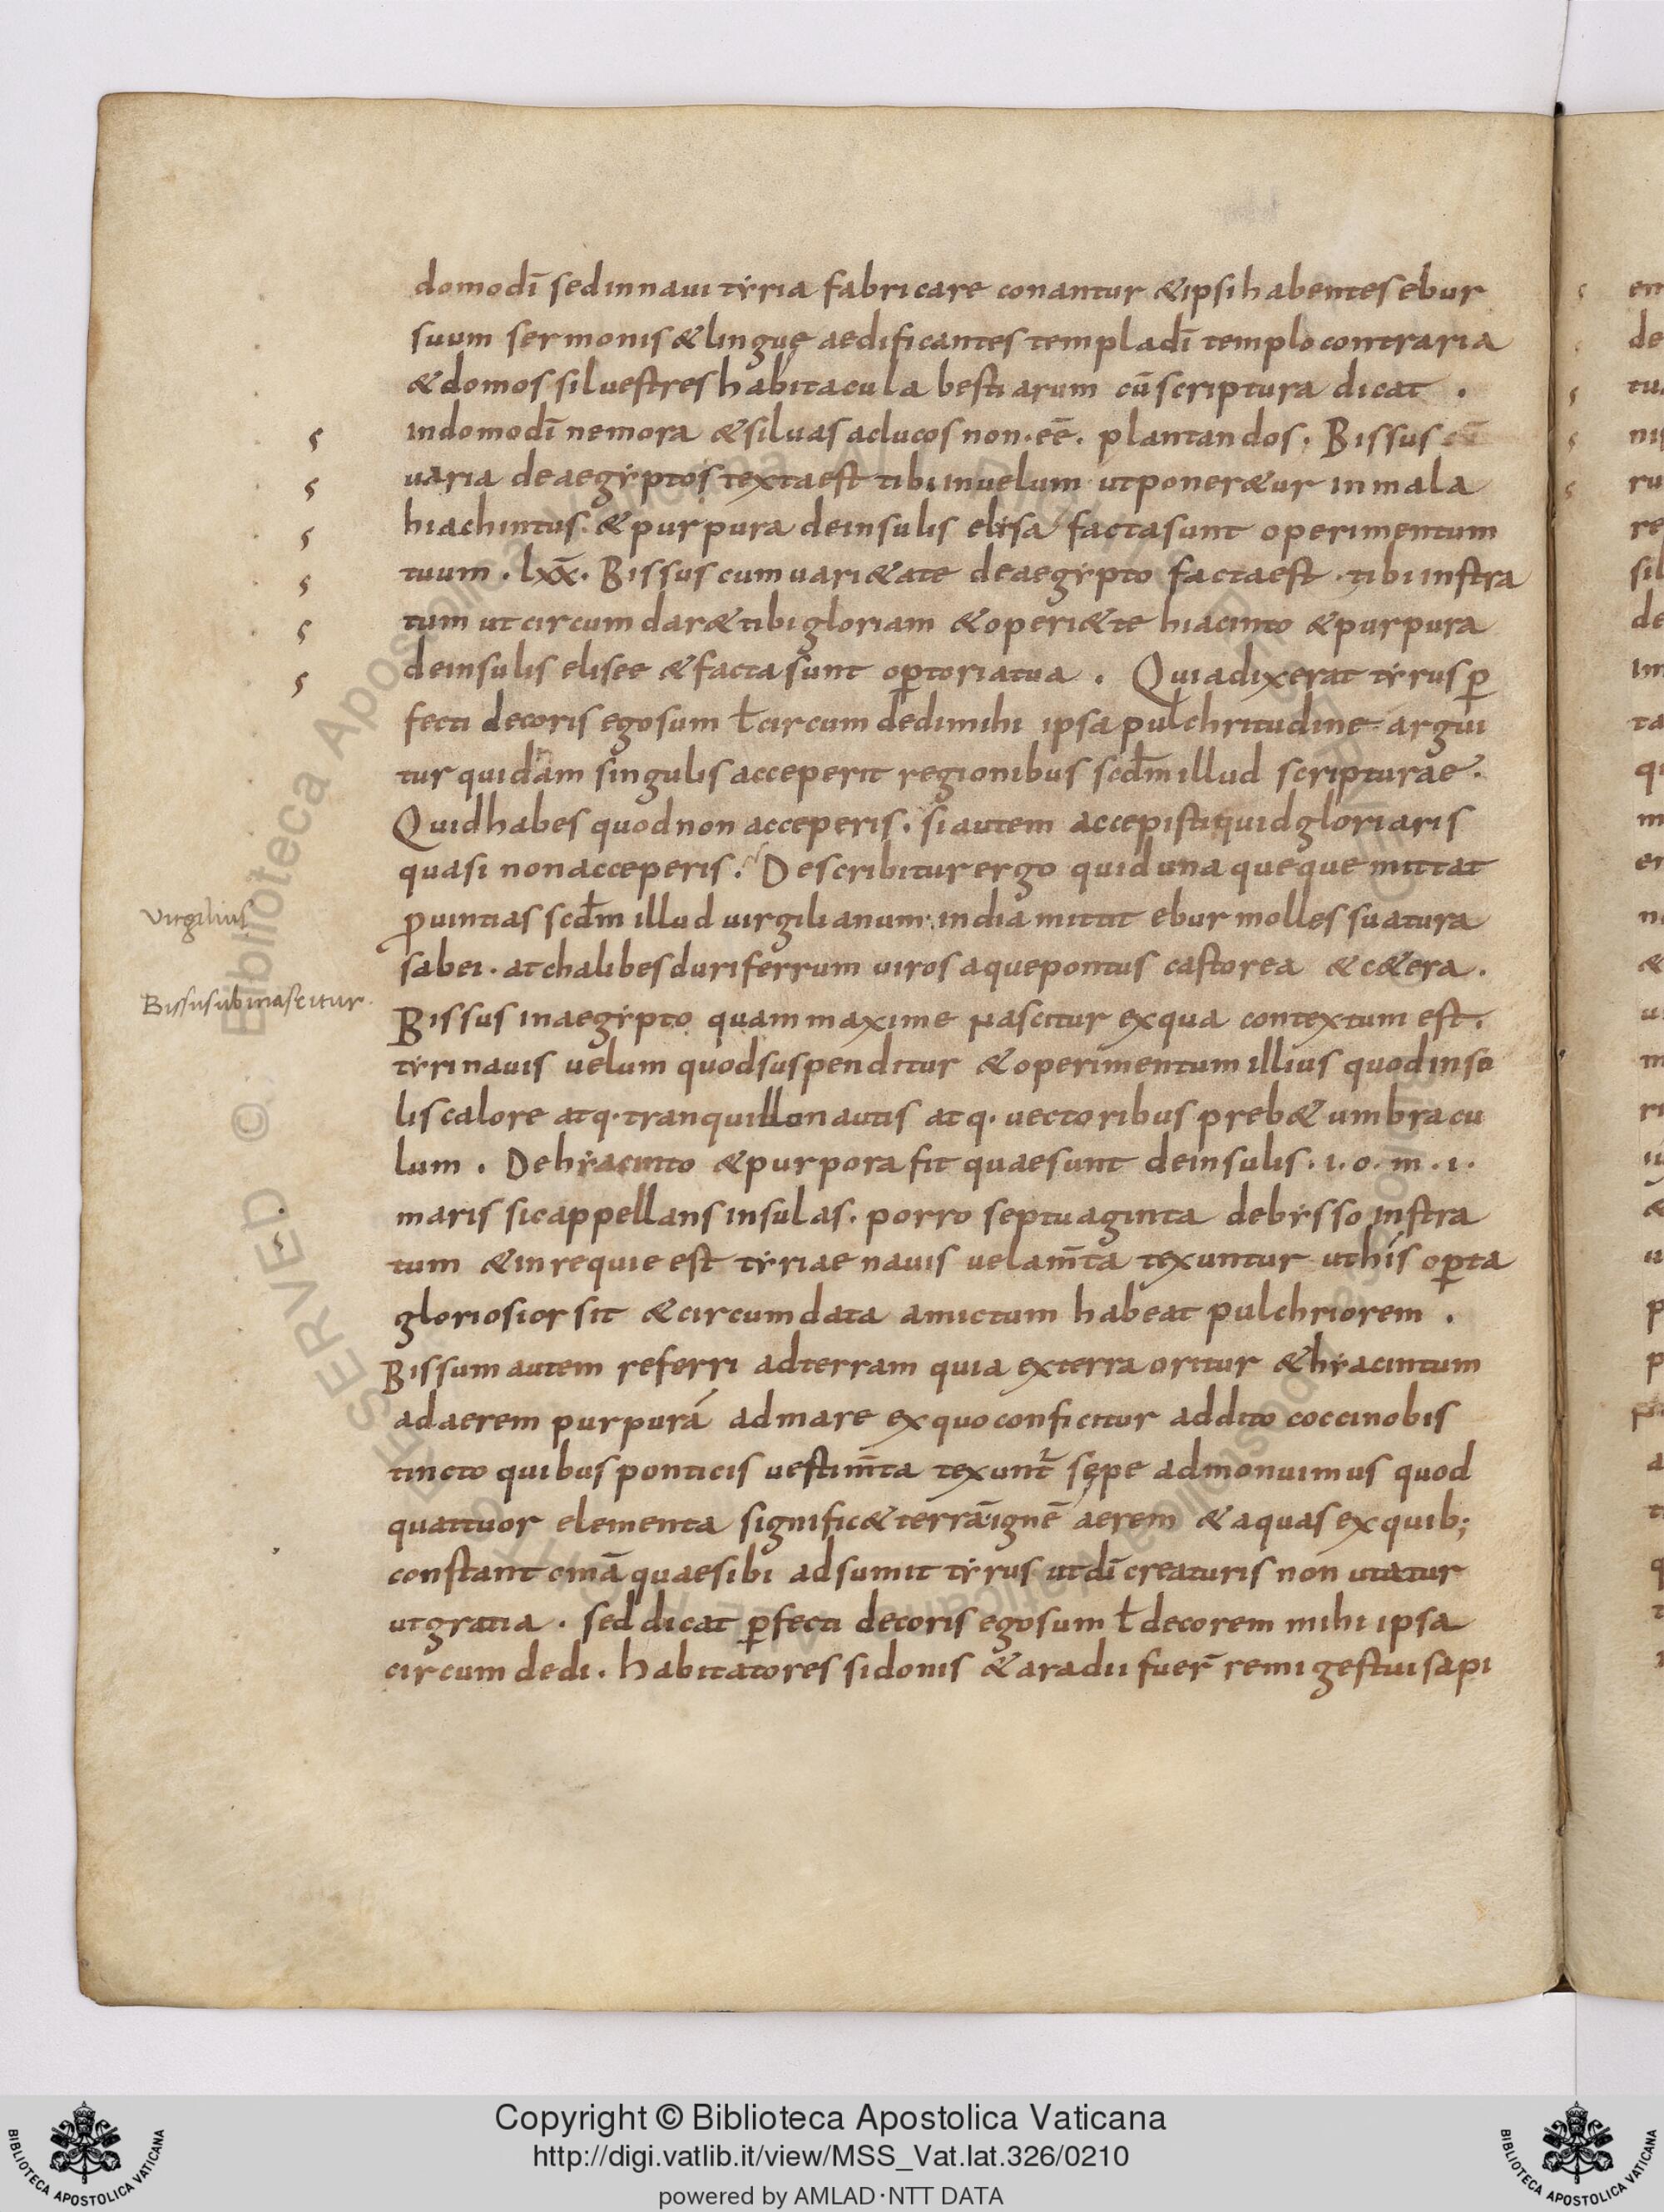 domo dī sed in naui tẏria fabricare conantur & ipsi habentes ebur
suum sermonis & linguę aedificantes templa dī templo contraria
& domos siluestres habitacula bestiarum cū scriptura dicat .
in domo dī nemora & siluas ac lucos non . eē . plantandos . Bissus
uaria de aegẏptos texta est tibi in uelum ut poner&ur in mala
hiachintus . & purpura de insulis elisa facta sunt operimentum
tuum . lxx̄ . Bissus cum uari&ate de aegẏpto facta est . tibi instra
tum ut circumdar& tibi gloriam & operi&te hiacinto & purpura
de insulis elisee & facta sunt oꝑtoria tua . Quia dixerat tẏrus ꝑ
fecti decoris ego sum ł circumdedi mihi ipsa pulchritudine argui
tur quidam singulis acceperit regionibus scdm̄ illud scripturae .
Quid habes quod non acceperis . si autem accepisti quid gloriaris
quasi non acceperis . Describitur ergo quid una queque mittat
Virgilius
ꝓuintias scdm̄ illud uirgilianum . india mittit ebur molles sua tura
sabei . at chalibes duri ferrum uirosaque pontus castorea & c&era .
Bissus ubi nascitur .
Bissus in aegẏpto quam maxime nascitur ex qua contextum est .
tẏri nauis uelum quod suspenditur & operimentum illius quod in so
lis calore atq . tranquillo nautis atq . uectoribus preb& umbracu
lum . De hẏacinto & purpora fit quae sunt de insulis . i . o . m . i .
maris sic appellans insulas . porro septuaginta de bẏsso instra
tum & in requie est tẏriae nauis uelam̄ta texuntur ut his oꝑta
gloriosior sit & circumdata amictum habeat pulchriorem .
Bissum autem referri ad terram quia ex terra oritur & hẏacintum
ad aerem purpurá ad mare ex quo conficitur addito cocci nobis
tincto quibus ponticis uestim̄ta texunt̄ sępe admonuimus quod
quattuor elementa signific& terrā ignē aerem & aquas ex quib;
constant omā quae sibi adsumit tẏrus ut dī creaturis non utatur
ut gratia . sed dicat ꝑfecti decoris ego sum ł decorem mihi ipsa
circumdedi . habitatores sidonis & aradii fuer̄ remiges tui sapi
Copyright © Biblioteca Apostolica Vaticana
http://digi.vatlib.it/view/MSS_Vat.lat.326/0210
powered by AMLAD·NTT DATA
BIBLIOTECA APOSTOLICA VATICANA
BIBLIOTECA APOSTOLICA VATICANA